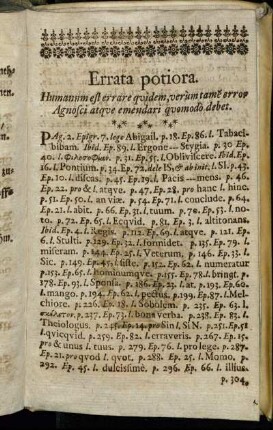 Errata potiora.
Humanum est errare qvidem, verùm tamẽ error
Agnosci atqve emendari qvomodo debet.
PAg. 2. Epigr. 7. lege Abigail. p. 18. Ep. 86. l. Tabaci
bibam. Ibid. Ep. 89. l. Ergone - Stygia. p. 30 Ep.
40. l. p. 31. Ep. 55. l. Oblivilcere. Ibid. Ep.
16. l. Pontium. p. 34. Ep. 72. dele IS, & ab init. l. SI. p. 43.
Ep. 10. Ædificas. p. 45. Ep. 19. l. Pacis - mens. p. 46.
Ep. 22. pro & l. atqve. p. 47. Ep. 28. pro hanc l. hinc.
p. 51. Ep. 50. l. an viæ. p. 54. Ep. 71. l. conclude. p. 64.
Ep. 21. l. abit. p. 66. Ep. 31. l. tuum. p. 70. Ep. 51. l. no-
to. p. 72. Ep. 65. l. Ecqvid. p. 81. Ep. 3. l. altisonans.
Ibid. Ep. 4. l. Regis. p. 112. Ep. 69. l. atqve. p. 121. Ep.
6. l. Stulti. p. 129. Ep. 32. l. formidet. p. 135. Ep. 79. l.
miseram. p. 144. Ep. 25. l. Veterum. p. 146. Ep. 33. l.
Sic. p. 149. Ep. 45. l. iste. p. 152. Ep. 62. l. numeratur
p. 153. Ep. 65. l. hominumqve. p. 155. Ep. 78. l. bringt. p.
178. Ep. 93. l. Sponsa. p. 186. Ep. 23. l. at. p. 193. Ep. 60.
l. mango. p. 194. Ep. 62. l. pectus. p. 199. Ep. 87. l. Mel-
chiore. p. 226. Ep. 18. l. Sobolem. p. 235. Ep. 63. l.
p. 237. Ep. 73. l. bona verba. p. 238. Ep. 83. l.
Theiologus. p. 245. Ep. 14. pro Sin l. SIN. p. 251. Ep. 58
l. qvicqvid. p. 259. Ep. 82. l. erraveris. p. 267. Ep. 15.
pro & unus l. tuus. p. 279. Ep. 76. l. pro lege. p. 287.
Ep. 21. pro qvod l. qvot. p. 288. Ep. 25. l. Momo. p.
292. Ep. 45. l. dulcissimè. p. 296. Ep. 66. l. illius.
p. 304.